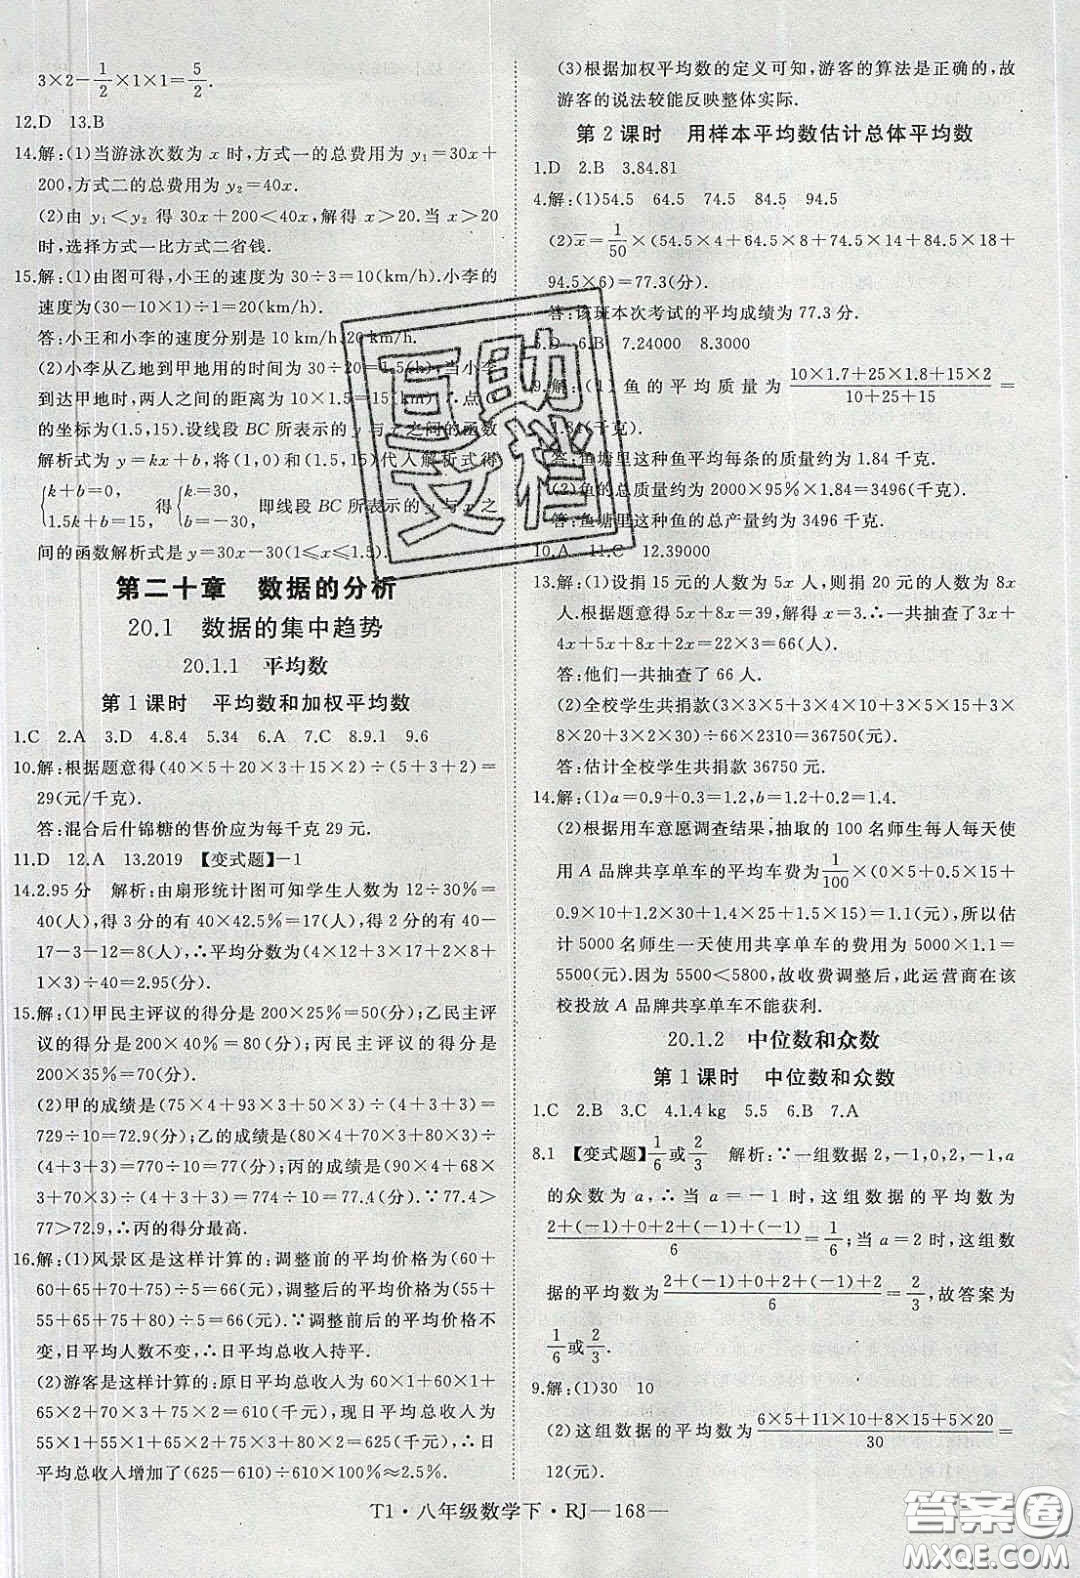 3×2－1/2×1×1＝5/2.
12.D　13.B
14.解:(1)当游泳次数为 x 时,方式一的总费用为 y₁＝30x＋
200,方式二的总费用为 y₂＝40x.
(2)由 y₁＜y₂ 得 30x＋200＜40x,解得 x＞20.当 x＞20
时,选择方式一比方式二省钱.
15.解:(1)由图可得,小王的速度为 30÷3＝10(km/h).小李的
速度为(30－10×1)÷1＝20(km/h).
答:小王和小李的速度分别是 10 km/h,20 km/h.
(2)小李从乙地到甲地用的时间为 30÷20＝1.5(h),当小李
到达甲地时,两人之间的距离为 10×1.5＝15(km),∴点 C
的坐标为(1.5,15).设线段 BC 所表示的 y 与 x 之间的函数
解析式为 y＝kx＋b,将(1,0)和(1.5,15)代入解析式得
{k＋b＝0, 1.5k＋b＝15, 得{k＝30, b＝－30, 即线段 BC 所表示的 y 与 x 之
间的函数解析式是 y＝30x－30(1≤x≤1.5).
第二十章　数据的分析
20.1　数据的集中趋势
20.1.1　平均数
第 1 课时　平均数和加权平均数
1.C　2.A　3.D　4.8.4　5.34　6.A　7.C　8.9.1　9.6
10.解:根据题意得(40×5＋20×3＋15×2)÷(5＋3＋2)＝
29(元/千克).
答:混合后什锦糖的售价应为每千克 29 元.
11.D　12.A　13.2019　【变式题】－1
14.2.95 分　解析:由扇形统计图可知学生人数为 12÷30%＝
40(人),得 3 分的有 40×42.5%＝17(人),得 2 分的有 40－
17－3－12＝8(人),∴平均分数为(4×12＋3×17＋2×8＋
1×3)÷40＝2.95(分).
15.解:(1)甲民主评议的得分是 200×25%＝50(分);乙民主评
议的得分是 200×40%＝80(分);丙民主评议的得分是
200×35%＝70(分).
(2)甲的成绩是(75×4＋93×3＋50×3)÷(4＋3＋3)＝
729÷10＝72.9(分);乙的成绩是(80×4＋70×3＋80×3)÷
(4＋3＋3)＝77(分);丙的成绩是(90×4＋68×3＋
70×3)÷(4＋3＋3)＝774÷10＝77.4(分).∵77.4＞
77＞72.9,∴丙的得分最高.
16.解:(1)风景区是这样计算的:调整前的平均价格为(60＋
60＋65＋70＋75)÷5＝66(元),调整后的平均价格为(55＋
55＋65＋75＋80)÷5＝66(元).∵调整前后的平均价格不
变,日平均人数不变,∴日平均总收入持平.
(2)游客是这样计算的:原日平均总收入为 60×1＋60×1＋
65×2＋70×3＋75×2＝610(千元),现日平均总收入为
55×1＋55×1＋65×2＋75×3＋80×2＝625(千元),∴日
平均总收入增加了(625－610)÷610×100%≈2.5%.
(3)根据加权平均数的定义可知,游客的算法是正确的,故
游客的说法较能反映整体实际.
第 2 课时　用样本平均数估计总体平均数
1.D　2.B　3.84.81
4.解:(1)54.5　64.5　74.5　84.5　94.5
(2)x̄＝1/50×(54.5×4＋64.5×8＋74.5×14＋84.5×18＋
94.5×6)＝77.3(分).
答:该班本次考试的平均成绩为 77.3 分.
5.D　6.B　7.24000　8.3000
9.解:(1)鱼的平均质量为(10×1.7＋25×1.8＋15×2)/(10＋25＋15)＝
1.84(千克).
答:鱼塘里这种鱼平均每条的质量约为 1.84 千克.
(2)鱼的总质量约为 2000×95%×1.84＝3496(千克).
答:鱼塘里这种鱼的总产量约为 3496 千克.
10.A　11.C　12.39000
13.解:(1)设捐 15 元的人数为 5x 人,则捐 20 元的人数为 8x
人.根据题意得 5x＋8x＝39,解得 x＝3.∴一共抽查了 3x＋
4x＋5x＋8x＋2x＝22x＝66(人).
答:他们一共抽查了 66 人.
(2)全校学生共捐款(3×3×5＋3×4×10＋3×5×15＋3×
8×20＋3×2×30)÷66×2310＝36750(元).
答:估计全校学生共捐款 36750 元.
14.解:(1)a＝0.9＋0.3＝1.2,b＝1.2＋0.2＝1.4.
(2)根据用车意愿调查结果,抽取的 100 名师生每人每天使
用 A 品牌共享单车的平均车费为1/100×(0×5＋0.5×15＋
0.9×10＋1.2×30＋1.4×25＋1.5×15)＝1.1(元),所以估
计 5000 名师生一天使用共享单车的费用为 5000×1.1＝
5500(元).因为 5500＜5800,故收费调整后,此运营商在该
校投放 A 品牌共享单车不能获利.
20.1.2　中位数和众数
第 1 课时　中位数和众数
1.C　2.B　3.C　4.1.4 kg　5.5　6.B　7.A
8.1　【变式题】1/6或2/3　解析:∵一组数据 2,－1,0,2,－1,a
的众数为 a,∴当 a＝－1 时,这组数据的平均数为
(2＋(－1)＋0＋2＋(－1)＋(－1))/6＝1/6;当 a＝2 时,这组数
据的平均数为(2＋(－1)＋0＋2＋(－1)＋2)/6＝4/6＝2/3,故答案为
1/6或2/3.
9.解:(1)30　10
(2)这组数据的平均数为(6×5＋11×10＋8×15＋5×20)/30＝
12(元).
T1・八年级数学下・RJ—168—
互助
文档
答案圈
MXQE.COM